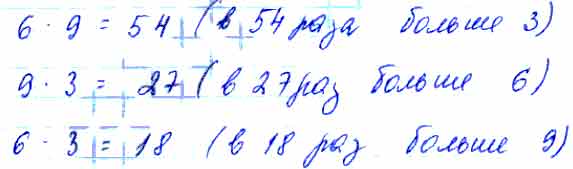 6 · 9 = 54 (в 54 раза больше 3)
9 · 3 = 27 (в 27 раз больше 6)
6 · 3 = 18 (в 18 раз больше 9)